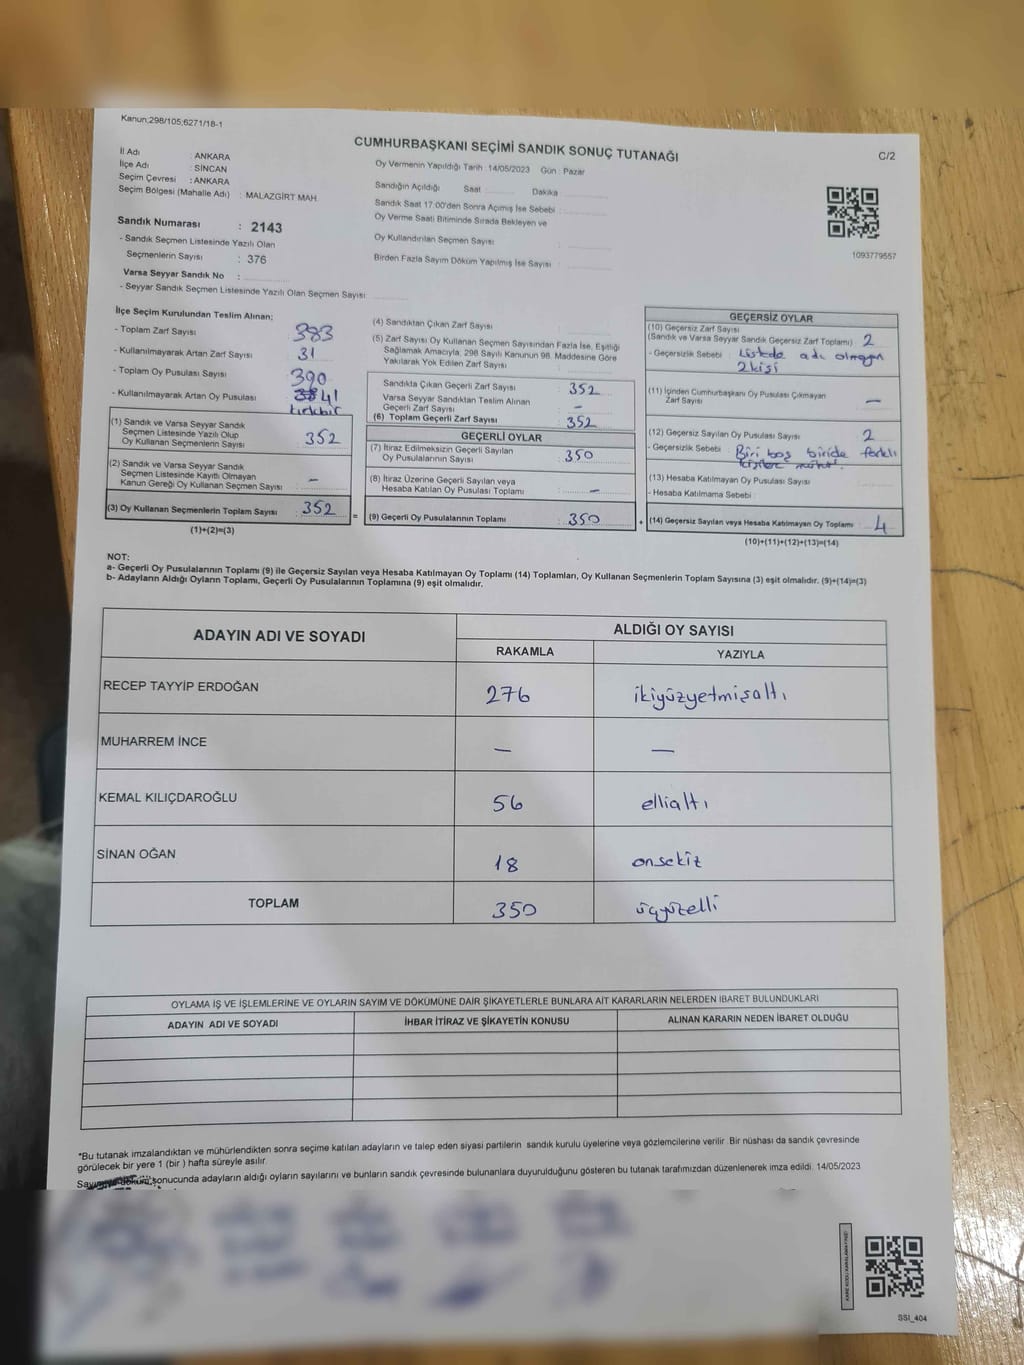 Kanun;298/105;6271/18-1
CUMHURBAŞKANI SEÇİMİ SANDIK SONUÇ TUTANAĞI
C/2
İl Adı : ANKARA
İlçe Adı : SİNCAN
Seçim Çevresi : ANKARA
Seçim Bölgesi (Mahalle Adı) : MALAZGİRT MAH.
Oy Vermenin Yapıldığı Tarih :14/05/2023 Gün : Pazar
Sandığın Açıldığı Saat Dakika
Sandık Saat 17:00'den Sonra Açımış İse Sebebi :
Oy Verme Saati Bitiminde Sırada Bekleyen ve
Oy Kullandırılan Seçmen Sayısı :
Birden Fazla Sayım Döküm Yapılmış İse Sayısı :
1093779557
Sandık Numarası : 2143
- Sandık Seçmen Listesinde Yazılı Olan
Seçmenlerin Sayısı : 376
Varsa Seyyar Sandık No :
- Seyyar Sandık Seçmen Listesinde Yazılı Olan Seçmen Sayısı
İlçe Seçim Kurulundan Teslim Alınan;
- Toplam Zarf Sayısı 383
- Kullanılmayarak Artan Zarf Sayısı 31
- Toplam Oy Pusulası Sayısı 390
- Kullanılmayarak Artan Oy Pusulası 41
kırkbir
(1) Sandık ve Varsa Seyyar Sandık
Seçmen Listesinde Yazılı Olup
Oy Kullanan Seçmenlerin Sayısı : 352
(2) Sandık ve Varsa Seyyar Sandık
Seçmen Listesinde Kayıtlı Olmayan
Kanun Gereği Oy Kullanan Seçmen Sayısı : –
(3) Oy Kullanan Seçmenlerin Toplam Sayısı : 352
(1)+(2)=(3)
(4) Sandıktan Çıkan Zarf Sayısı :
(5) Zarf Sayısı Oy Kullanan Seçmen Sayısından Fazla İse, Eşitliği
Sağlamak Amacıyla, 298 Sayılı Kanunun 98. Maddesine Göre
Yakılarak Yok Edilen Zarf Sayısı :
Sandıkta Çıkan Geçerli Zarf Sayısı : 352
Varsa Seyyar Sandıktan Teslim Alınan
Geçerli Zarf Sayısı : –
(6) Toplam Geçerli Zarf Sayısı : 352
GEÇERLİ OYLAR
(7) İtiraz Edilmeksizin Geçerli Sayılan
Oy Pusulalarının Sayısı : 350
(8) İtiraz Üzerine Geçerli Sayılan veya
Hesaba Katılan Oy Pusulası Toplamı : –
= (9) Geçerli Oy Pusulalarının Toplamı : 350
GEÇERSİZ OYLAR
(10) Geçersiz Zarf Sayısı
(Sandık ve Varsa Seyyar Sandık Geçersiz Zarf Toplamı) : 2
- Geçersizlik Sebebi : Listede adı olmayan
2kişi
(11) İçinden Cumhurbaşkanı Oy Pusulası Çıkmayan
Zarf Sayısı : –
(12) Geçersiz Sayılan Oy Pusulası Sayısı : 2
- Geçersizlik Sebebi : Biri boş biride farklı
(13) Hesaba Katılmayan Oy Pusulası Sayısı :
- Hesaba Katılmama Sebebi :
+ (14) Geçersiz Sayılan veya Hesaba Katılmayan Oy Toplamı : 4
(10)+(11)+(12)+(13)=(14)
NOT:
a- Geçerli Oy Pusulalarının Toplamı (9) ile Geçersiz Sayılan veya Hesaba Katılmayan Oy Toplamı (14) Toplamları, Oy Kullanan Seçmenlerin Toplam Sayısına (3) eşit olmalıdır. (9)+(14)=(3)
b- Adayların Aldığı Oyların Toplamı, Geçerli Oy Pusulalarının Toplamına (9) eşit olmalıdır.
ADAYIN ADI VE SOYADI
ALDIĞI OY SAYISI
RAKAMLA YAZIYLA
RECEP TAYYİP ERDOĞAN 276 ikiyüzyetmişaltı
MUHARREM İNCE – –
KEMAL KILIÇDAROĞLU 56 ellialtı
SİNAN OĞAN 18 onsekiz
TOPLAM 350 üçyüzelli
OYLAMA İŞ VE İŞLEMLERİNE VE OYLARIN SAYIM VE DÖKÜMÜNE DAİR ŞİKAYETLERLE BUNLARA AİT KARARLARIN NELERDEN İBARET BULUNDUKLARI
ADAYIN ADI VE SOYADI İHBAR İTİRAZ VE ŞİKAYETİN KONUSU ALINAN KARARIN NEDEN İBARET OLDUĞU
*Bu tutanak imzalandıktan ve mühürlendikten sonra seçime katılan adayların ve talep eden siyasi partilerin sandık kurulu üyelerine veya gözlemcilerine verilir. Bir nüshası da sandık çevresinde
görülecek bir yere 1 (bir ) hafta süreyle asılır.
sonucunda adayların aldığı oyların sayılarını ve bunların sandık çevresinde bulunanlara duyurulduğunu gösteren bu tutanak tarafımızdan düzenlenerek imza edildi. 14/05/2023
SSI_404